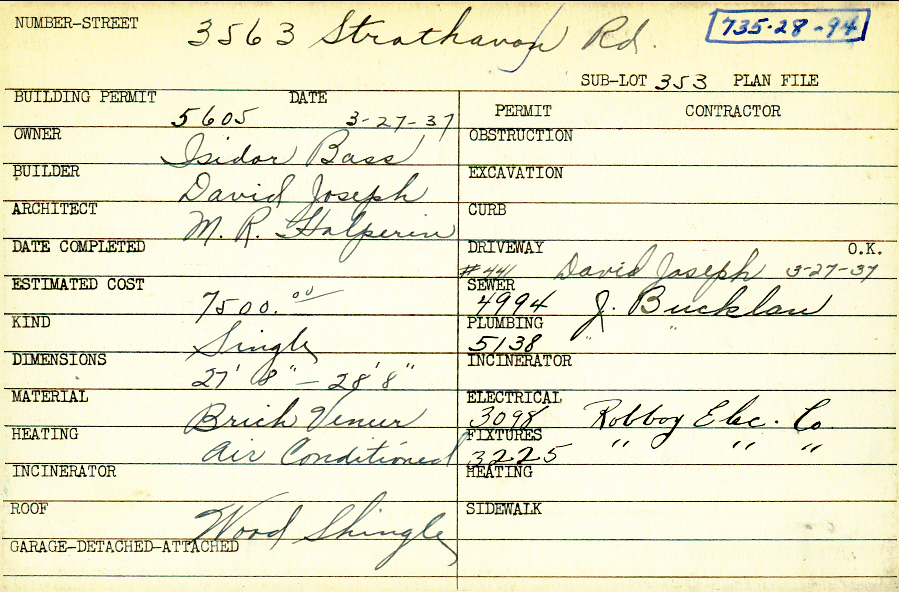 NUMBER-STREET 3563 Strathavon Rd. 735-28-94
SUB-LOT 353 PLAN FILE
BUILDING PERMIT 5605 DATE 3-27-37
OWNER Isidor Bass
BUILDER David Joseph
ARCHITECT M. R. Halperin
DATE COMPLETED
ESTIMATED COST 7500.00
KIND Single
DIMENSIONS 27' 8" - 28' 8"
MATERIAL Brick Veneer
HEATING Air Conditioned
INCINERATOR
ROOF Wood Shingle
GARAGE-DETACHED-ATTACHED
PERMIT CONTRACTOR
OBSTRUCTION
EXCAVATION
CURB
DRIVEWAY O.K.
#441 David Joseph 3-27-37
SEWER
4994 J. Bucklan
PLUMBING
5138 "  "
INCINERATOR
ELECTRICAL
3098 Robboy Elec. Co.
FIXTURES
3225 " " "
HEATING
SIDEWALK